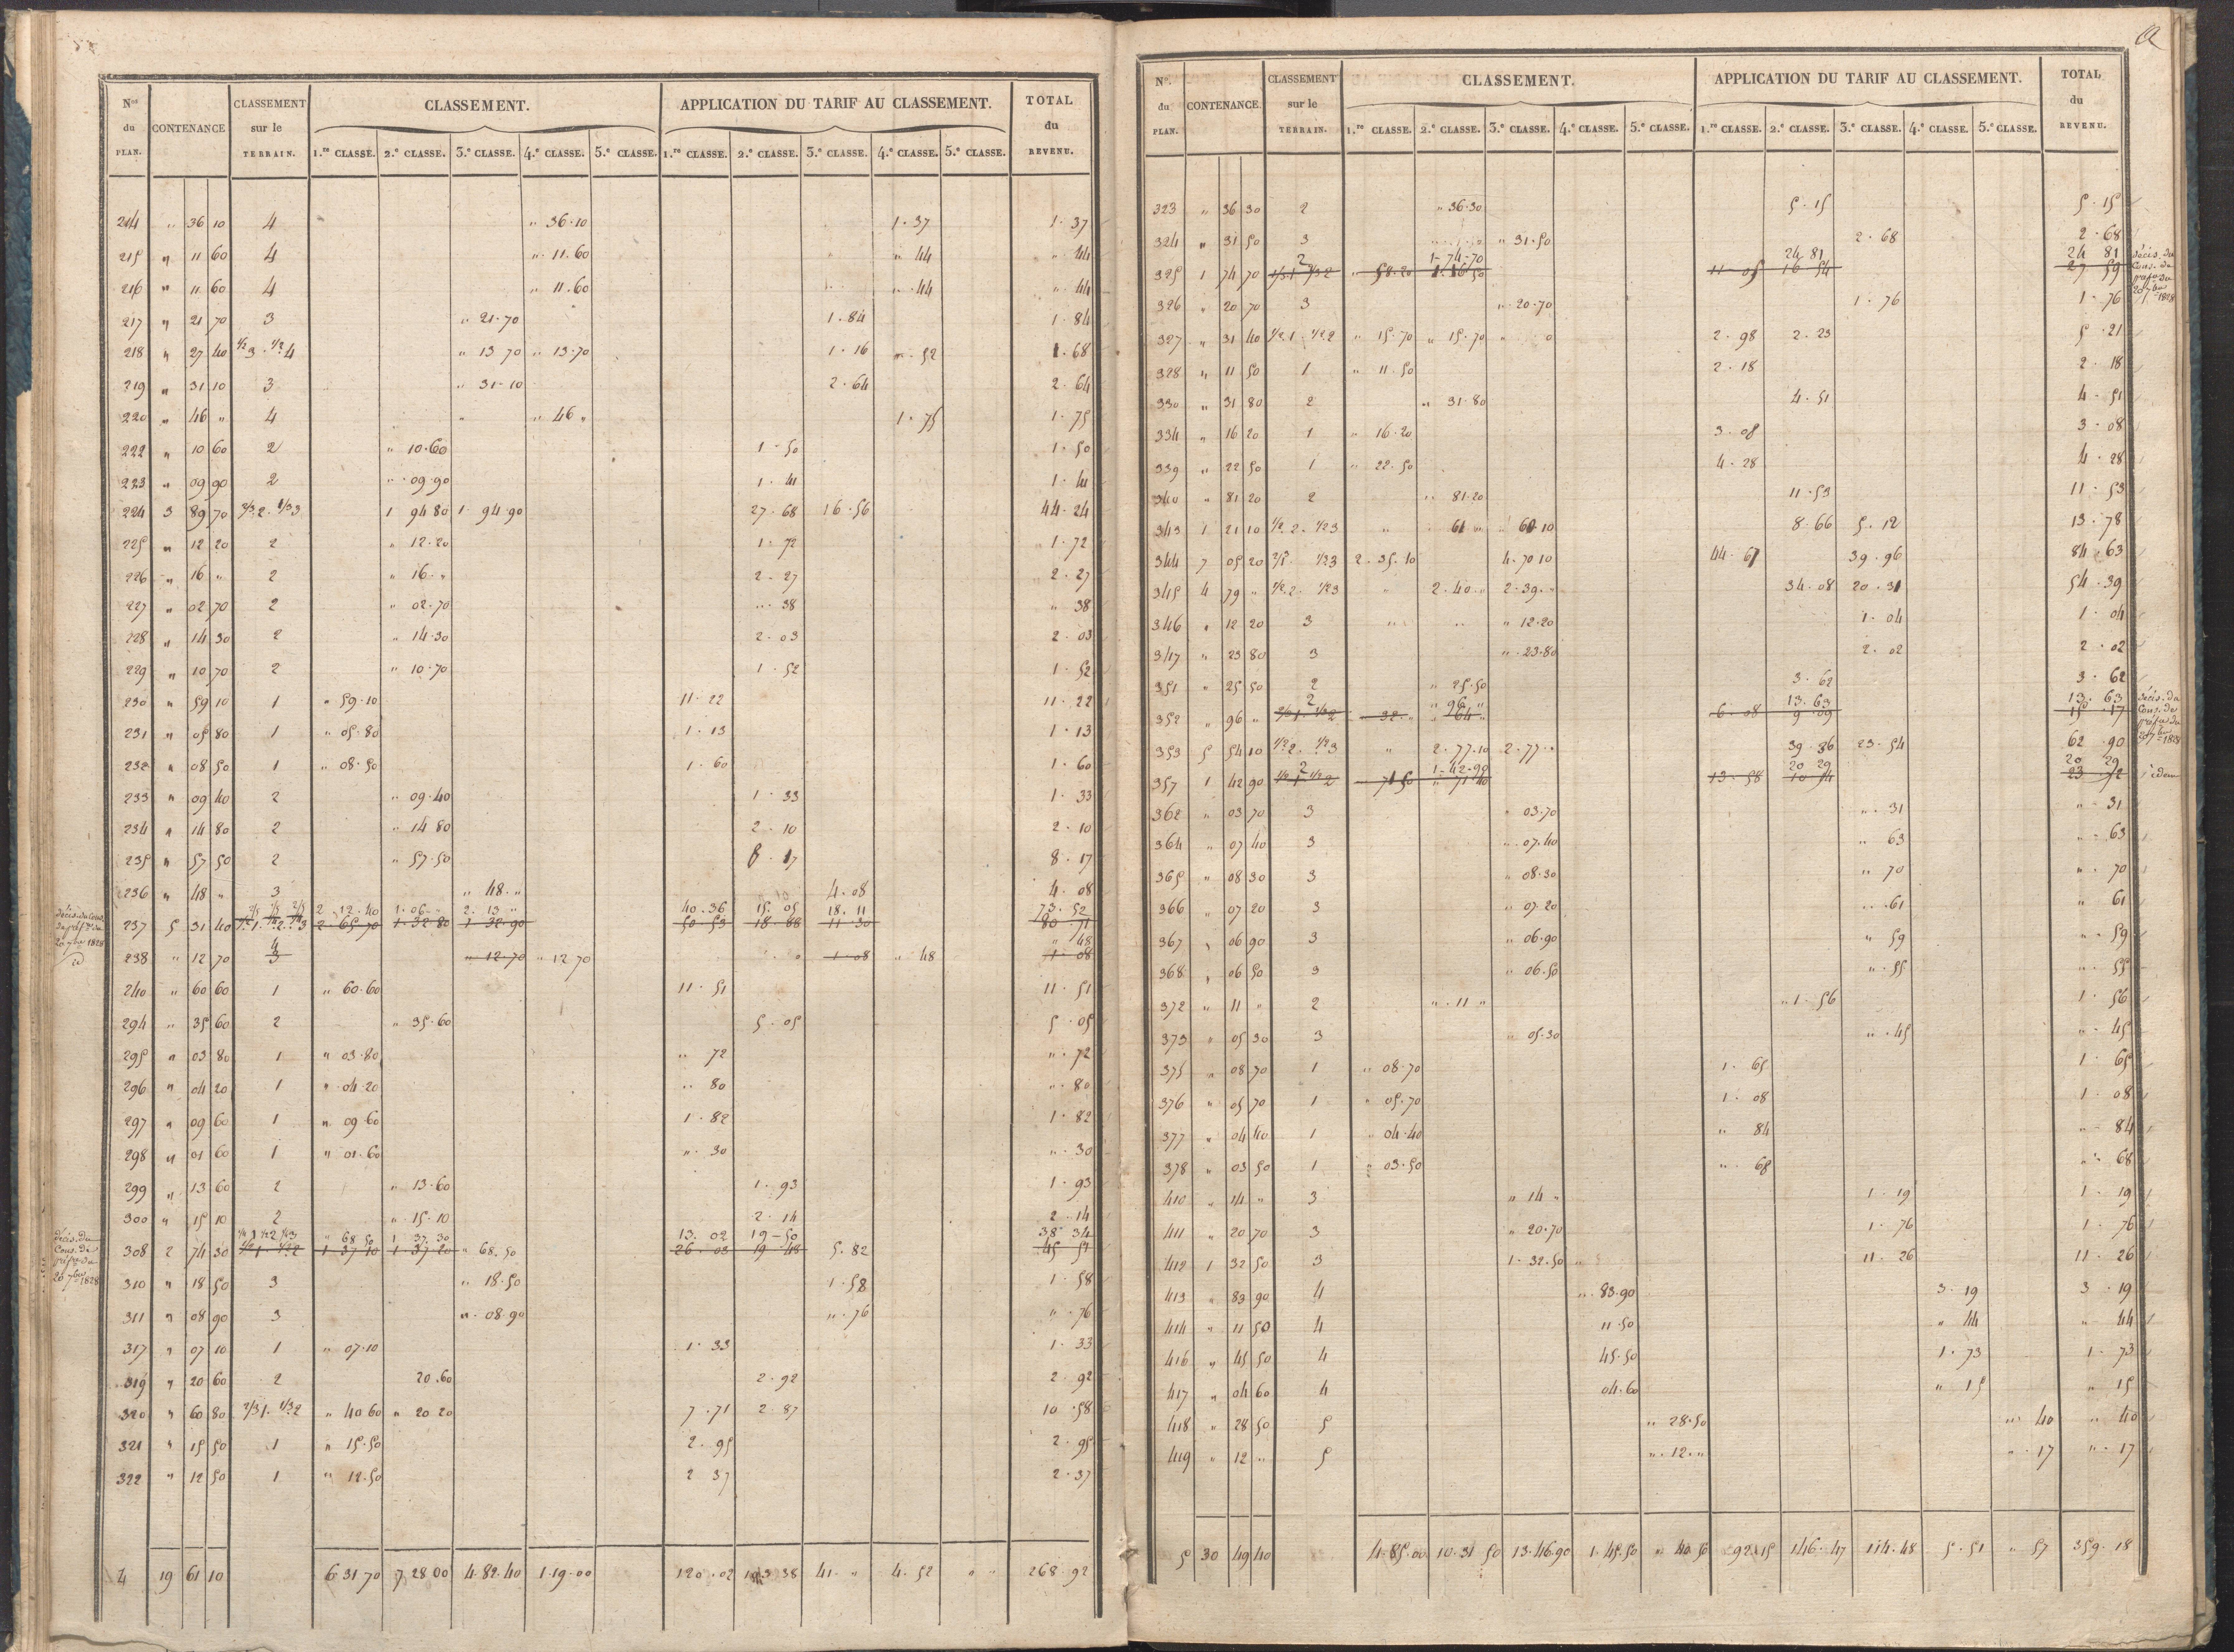 Nos du PLAN. | CONTENANCE | CLASSEMENT sur le TERRAIN. | CLASSEMENT. | APPLICATION DU TARIF AU CLASSEMENT. | TOTAL du REVENU.
1.re CLASSE. | 2.e CLASSE. | 3.e CLASSE. | 4.e CLASSE. | 5.e CLASSE. | 1.re CLASSE. | 2.e CLASSE. | 3.e CLASSE. | 4.e CLASSE. | 5.e CLASSE.
214 " 36 10 4 " 36.10 1.37 1.37
215 " 11 60 4 " 11.60 " 44 " 44
216 " 11 60 4 " 11.60 " 44 " 44
217 " 21 70 3 " 21.70 1.84 1.84
218 " 27 40 1/2 3. 1/2 4 " 13 70 " 13.70 1.16 " 52 1.68
219 " 31 10 3 " 31-10 2.64 2.64
220 " 46 " 4 " 46 " 1.75 1.75
222 " 10 60 2 " 10.60 1-50 1.50
223 " 09 90 2 " 09.90 1.41 1.41
224 3 89 70 1/2 2. 1/2 3 1 94 80 1.94.90 27.68 16.56 44-24
225 " 12 20 2 " 12.20 1.72 1.72
226 " 16 " 2 " 16 " 2-27 2.27
227 " 02 70 2 " 02.70 " 38 " 38
228 " 14 30 2 " 14.30 2-03 2.03
229 " 10 70 2 " 10.70 1.52 1.52
230 " 59 10 1 " 59.10 11.22 11.22
231 " 05 80 1 " 05.80 1.13 1.13
232 " 08 50 1 " 08.50 1.60 1.60
233 " 09 40 2 " 09.40 1.33 1.33
234 " 14 80 2 " 14 80 2.10 2.10
235 " 57 50 2 " 57.50 8.17 8.17
236 " 48 " 3 " 48." 4.08 4.08
2/5 1/5 2/5 2 12.40 1.06 " 2.13 " 40.36 15.05 18.11 73.52
décis. du Cons. de préf. du 20 7bre 1828
237 5 31 40 1/2 1. 1/4 2. 1/4 3 2.65 70 1.32 80 1 32.90 50 53 18.88 11.30 80.71
4 " 48
238 " 12 70 3 " 12.70 " 12 70 1.08 " 48 1.08
240 " 60 60 1 " 60.60 11.51 11.51
294 " 35 60 2 " 35.60 5.05 5.05
295 " 03 80 1 " 03.80 " 72 " 72
296 " 04 20 1 " 04.20 " 80 " 80
297 " 09 60 1 " 09 60 1.82 1.82
298 " 01 60 1 " 01.60 " 30 " 30
299 " 13 60 2 " 13.60 1.93 1.93
300 " 15 10 2 " 15.10 2.14 2.14
1/4 1 1/2 2 1/4 3 " 68 50 1 37.30 13.02 19-50 38 34
décis. du Cons. de préf. du 20 7bre 1828
308 2 74 30 1/2 1. 1/2 2 1 37 10 1.37 20 " 68.50 26.03 19.48 5.82 45 51
310 " 18 50 3 " 18.50 1.58 1.58
311 " 08 90 3 " 08.90 " 76 " 76
317 " 07 10 1 " 07.10 1.33 1.33
319 " 20 60 2 20.60 2.92 2.92
320 " 60 80 2/3 1. 1/3 2 " 40 60 " 20 20 7.71 2.87 10.58
321 " 15 50 1 " 15.50 2.95 2.95
322 " 12 50 1 " 12.50 2 37 2.37
4 19 61 10 6 31 70 7 28 00 4.82.40 1.19.00 120.02 103 38 41." 4.52 " " 268.92
N°. du PLAN. | CONTENANCE. | CLASSEMENT sur le TERRAIN. | CLASSEMENT. | APPLICATION DU TARIF AU CLASSEMENT. | TOTAL du REVENU.
1.re CLASSE. | 2.e CLASSE. | 3.e CLASSE. | 4.e CLASSE. | 5.e CLASSE. | 1.re CLASSE. | 2.e CLASSE. | 3.e CLASSE. | 4.e CLASSE. | 5.e CLASSE.
323 " 36 30 2 " 36.30 5.15 5.15
324 " 31 50 3 " 31.50 2.68 2.68
2 1-74-70 24 81 24 81
325 1 74 70 1/3 1 2/3 2 " 58.20 1.16 50 11-05 16 54 27 59
décis. du Cons. de préf. du 20 7bre 1828
326 " 20 70 3 " 20.70 1.76 1.76
327 " 31 40 1/2 1 1/2 2 " 15.70 " 15.70 2.98 2.23 5.21
328 " 11 50 1 " 11.50 2.18 2.18
330 " 31 80 2 " 31.80 4.51 4.51
334 " 16 20 1 " 16.20 3.08 3.08
339 " 22 50 1 " 22.50 4.28 4.28
340 " 81 20 2 " 81.20 11.53 11.53
343 1 21 10 1/2 2. 1/2 3 " 61 " 60 10 8.66 5.12 13.78
344 7 05 20 2.35.10 4.70 10 44.67 39.96 84.63
345 4 79 " 1/2 2. 1/2 3 " 2.40 " 2.39 " 34.08 20.31 54.39
346 " 12 20 3 " 12.20 1.04 1.04
347 " 23 80 3 " 23.80 2.02 2.02
351 " 25 50 2 " 25.50 3.62 3.62
2 " 96 " 13.63 13.63
352 " 96 " 2/3 1. 1/3 2 32 " " 64 " 6-08 9 09 15.17
décis. du Cons. de préf. du 20 7bre 1828
353 5 54 10 1/2 2. 1/2 3 " 2.77.10 2.77 " 39.36 23.54 62.90
2 1-42-90 20 29 20 29
357 1 42 90 1/2 1. 1/2 2 71 50 " 71 40 13-58 10 14 23 72 idem
362 " 03 70 3 " 03.70 " 31 " 31
364 " 07 40 3 " 07.40 " 63 " 63
365 " 08 30 3 " 08.30 " 70 " 70
366 " 07 20 3 " 07.20 " 61 " 61
367 " 06 90 3 " 06.90 " 59 " 59
368 " 06 50 3 " 06.50 " 55 " 55
372 " 11 " 2 " 11 " " 1.56 1.56
373 " 05 30 3 " 05.30 " 45 " 45
375 " 08 70 1 " 08.70 1.65 1.65
376 " 05 70 1 " 05.70 1.08 1.08
377 " 04 40 1 " 04.40 " 84 " 84
378 " 03 50 1 " 03.50 " 68 " 68
410 " 14 " 3 " 14 " 1.19 1.19
411 " 20 70 3 " 20.70 1.76 1.76
412 1 32 50 3 1.32.50 11.26 11.26
413 " 83 90 4 " 83.90 3.19 3.19
414 " 11 50 4 11.50 " 44 " 44
416 " 45 50 4 45.50 1.73 1.73
417 " 04 60 4 04.60 " 15 " 15
418 " 28 50 5 " 28.50 " 40 " 40
419 " 12 " 5 " 12 " " 17 " 17
5 30 49 40 4.85.00 10.31 50 13.46.90 1.45.50 " 40.50 92.15 146.47 114.48 5.51 " 57 359.18